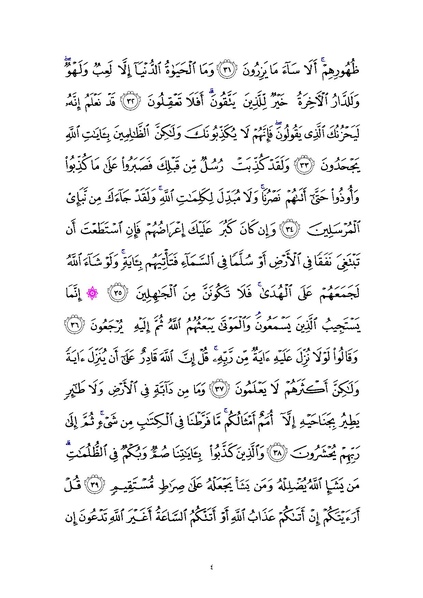 ظُهُورِهِمۡۚ أَلَا سَآءَ مَا يَزِرُونَ ٣١ وَمَا ٱلۡحَيَوٰةُ ٱلدُّنۡيَآ إِلَّا لَعِبٞ وَلَهۡوٞۖ
وَلَلدَّارُ ٱلۡأٓخِرَةُ خَيۡرٞ لِّلَّذِينَ يَتَّقُونَۚ أَفَلَا تَعۡقِلُونَ ٣٢ قَدۡ نَعۡلَمُ إِنَّهُۥ
لَيَحۡزُنُكَ ٱلَّذِي يَقُولُونَۖ فَإِنَّهُمۡ لَا يُكَذِّبُونَكَ وَلَٰكِنَّ ٱلظَّٰلِمِينَ بِـَٔايَٰتِ ٱللَّهِ
يَجۡحَدُونَ ٣٣ وَلَقَدۡ كُذِّبَتۡ رُسُلٞ مِّن قَبۡلِكَ فَصَبَرُواْ عَلَىٰ مَا كُذِّبُواْ
وَأُوذُواْ حَتَّىٰٓ أَتَىٰهُمۡ نَصۡرُنَاۚ وَلَا مُبَدِّلَ لِكَلِمَٰتِ ٱللَّهِۚ وَلَقَدۡ جَآءَكَ مِن نَّبَإِيْ
ٱلۡمُرۡسَلِينَ ٣٤ وَإِن كَانَ كَبُرَ عَلَيۡكَ إِعۡرَاضُهُمۡ فَإِنِ ٱسۡتَطَعۡتَ أَن
تَبۡتَغِيَ نَفَقٗا فِي ٱلۡأَرۡضِ أَوۡ سُلَّمٗا فِي ٱلسَّمَآءِ فَتَأۡتِيَهُم بِـَٔايَةٖۚ وَلَوۡ شَآءَ ٱللَّهُ
لَجَمَعَهُمۡ عَلَى ٱلۡهُدَىٰۚ فَلَا تَكُونَنَّ مِنَ ٱلۡجَٰهِلِينَ ٣٥ ۞ إِنَّمَا
يَسۡتَجِيبُ ٱلَّذِينَ يَسۡمَعُونَۘ وَٱلۡمَوۡتَىٰ يَبۡعَثُهُمُ ٱللَّهُ ثُمَّ إِلَيۡهِ يُرۡجَعُونَ ٣٦
وَقَالُواْ لَوۡلَا نُزِّلَ عَلَيۡهِ ءَايَةٞ مِّن رَّبِّهِۦۚ قُلۡ إِنَّ ٱللَّهَ قَادِرٌ عَلَىٰٓ أَن يُنَزِّلَ ءَايَةٗ
وَلَٰكِنَّ أَكۡثَرَهُمۡ لَا يَعۡلَمُونَ ٣٧ وَمَا مِن دَآبَّةٖ فِي ٱلۡأَرۡضِ وَلَا طَٰٓئِرٖ
يَطِيرُ بِجَنَاحَيۡهِ إِلَّآ أُمَمٌ أَمۡثَالُكُمۚ مَّا فَرَّطۡنَا فِي ٱلۡكِتَٰبِ مِن شَيۡءٖۚ ثُمَّ إِلَىٰ
رَبِّهِمۡ يُحۡشَرُونَ ٣٨ وَٱلَّذِينَ كَذَّبُواْ بِـَٔايَٰتِنَا صُمّٞ وَبُكۡمٞ فِي ٱلظُّلُمَٰتِۗ
مَن يَشَإِ ٱللَّهُ يُضۡلِلۡهُ وَمَن يَشَأۡ يَجۡعَلۡهُ عَلَىٰ صِرَٰطٖ مُّسۡتَقِيمٖ ٣٩ قُلۡ
أَرَءَيۡتَكُمۡ إِنۡ أَتَىٰكُمۡ عَذَابُ ٱللَّهِ أَوۡ أَتَتۡكُمُ ٱلسَّاعَةُ أَغَيۡرَ ٱللَّهِ تَدۡعُونَ إِن
٤